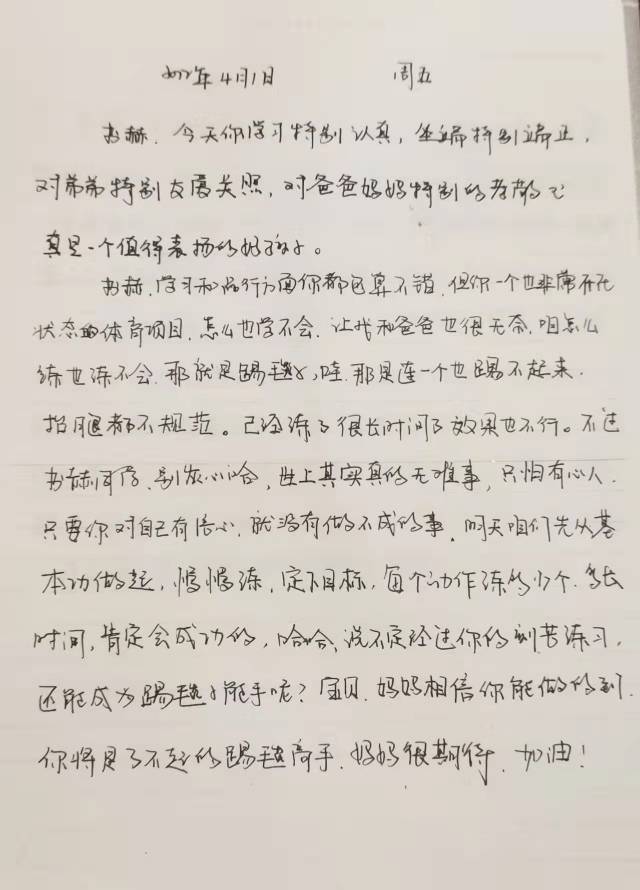 2022年4月1日 周五
书赫，今天你学习特别认真，坐端特别端正，
对弟弟特别友爱关照，对爸爸妈妈特别的孝敬
真是一个值得表扬的好孩子。
书赫，学习和品行方面你都已算不错，但你一个也非常不在
状态的体育项目，怎么也学不会，让我和爸爸也很无奈，咱怎么
练也练不会，那就是踢毽子，哇，那是连一个也踢不起来，
抬腿都不规范。已经练了很长时间了效果也不行。不过
书赫同学，别灰心哈，世上其实真的无难事，只怕有心人，
只要你对自己有信心，就没有做不成的事，明天咱们先从基
本功做起，慢慢练，定下目标，每个动作练的少个，多长
时间，肯定会成功的，哈哈，说不定经过你的刻苦练习，
还能成为踢毽子能手呢？宝贝，妈妈相信你能做的到，
你将是了不起的踢毽高手，妈妈很期待，加油！